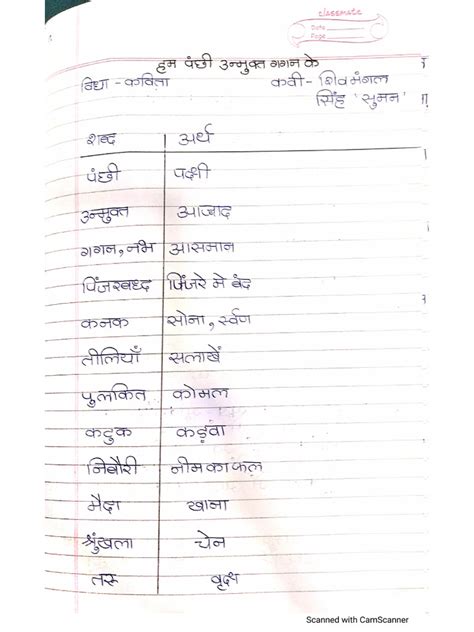 classmate
Date
Page
हम पंछी उन्मुक्त गगन के
विधा - कविता कवी - शिवमंगल
सिंह 'सुमन'
शब्द अर्थ
पंछी पक्षी
उन्मुक्त आज़ाद
गगन, नभ आसमान
पिंजरबध्द पिंजरे मे बंद
कनक सोना, र्स्वण
तीलियाँ सलाखें
पुलकित कोमल
कटुक कड़वा
निबौरी नीम का फल
मैदा खाना
श्रुंखला चेन
तरू वृक्ष
Scanned with CamScanner